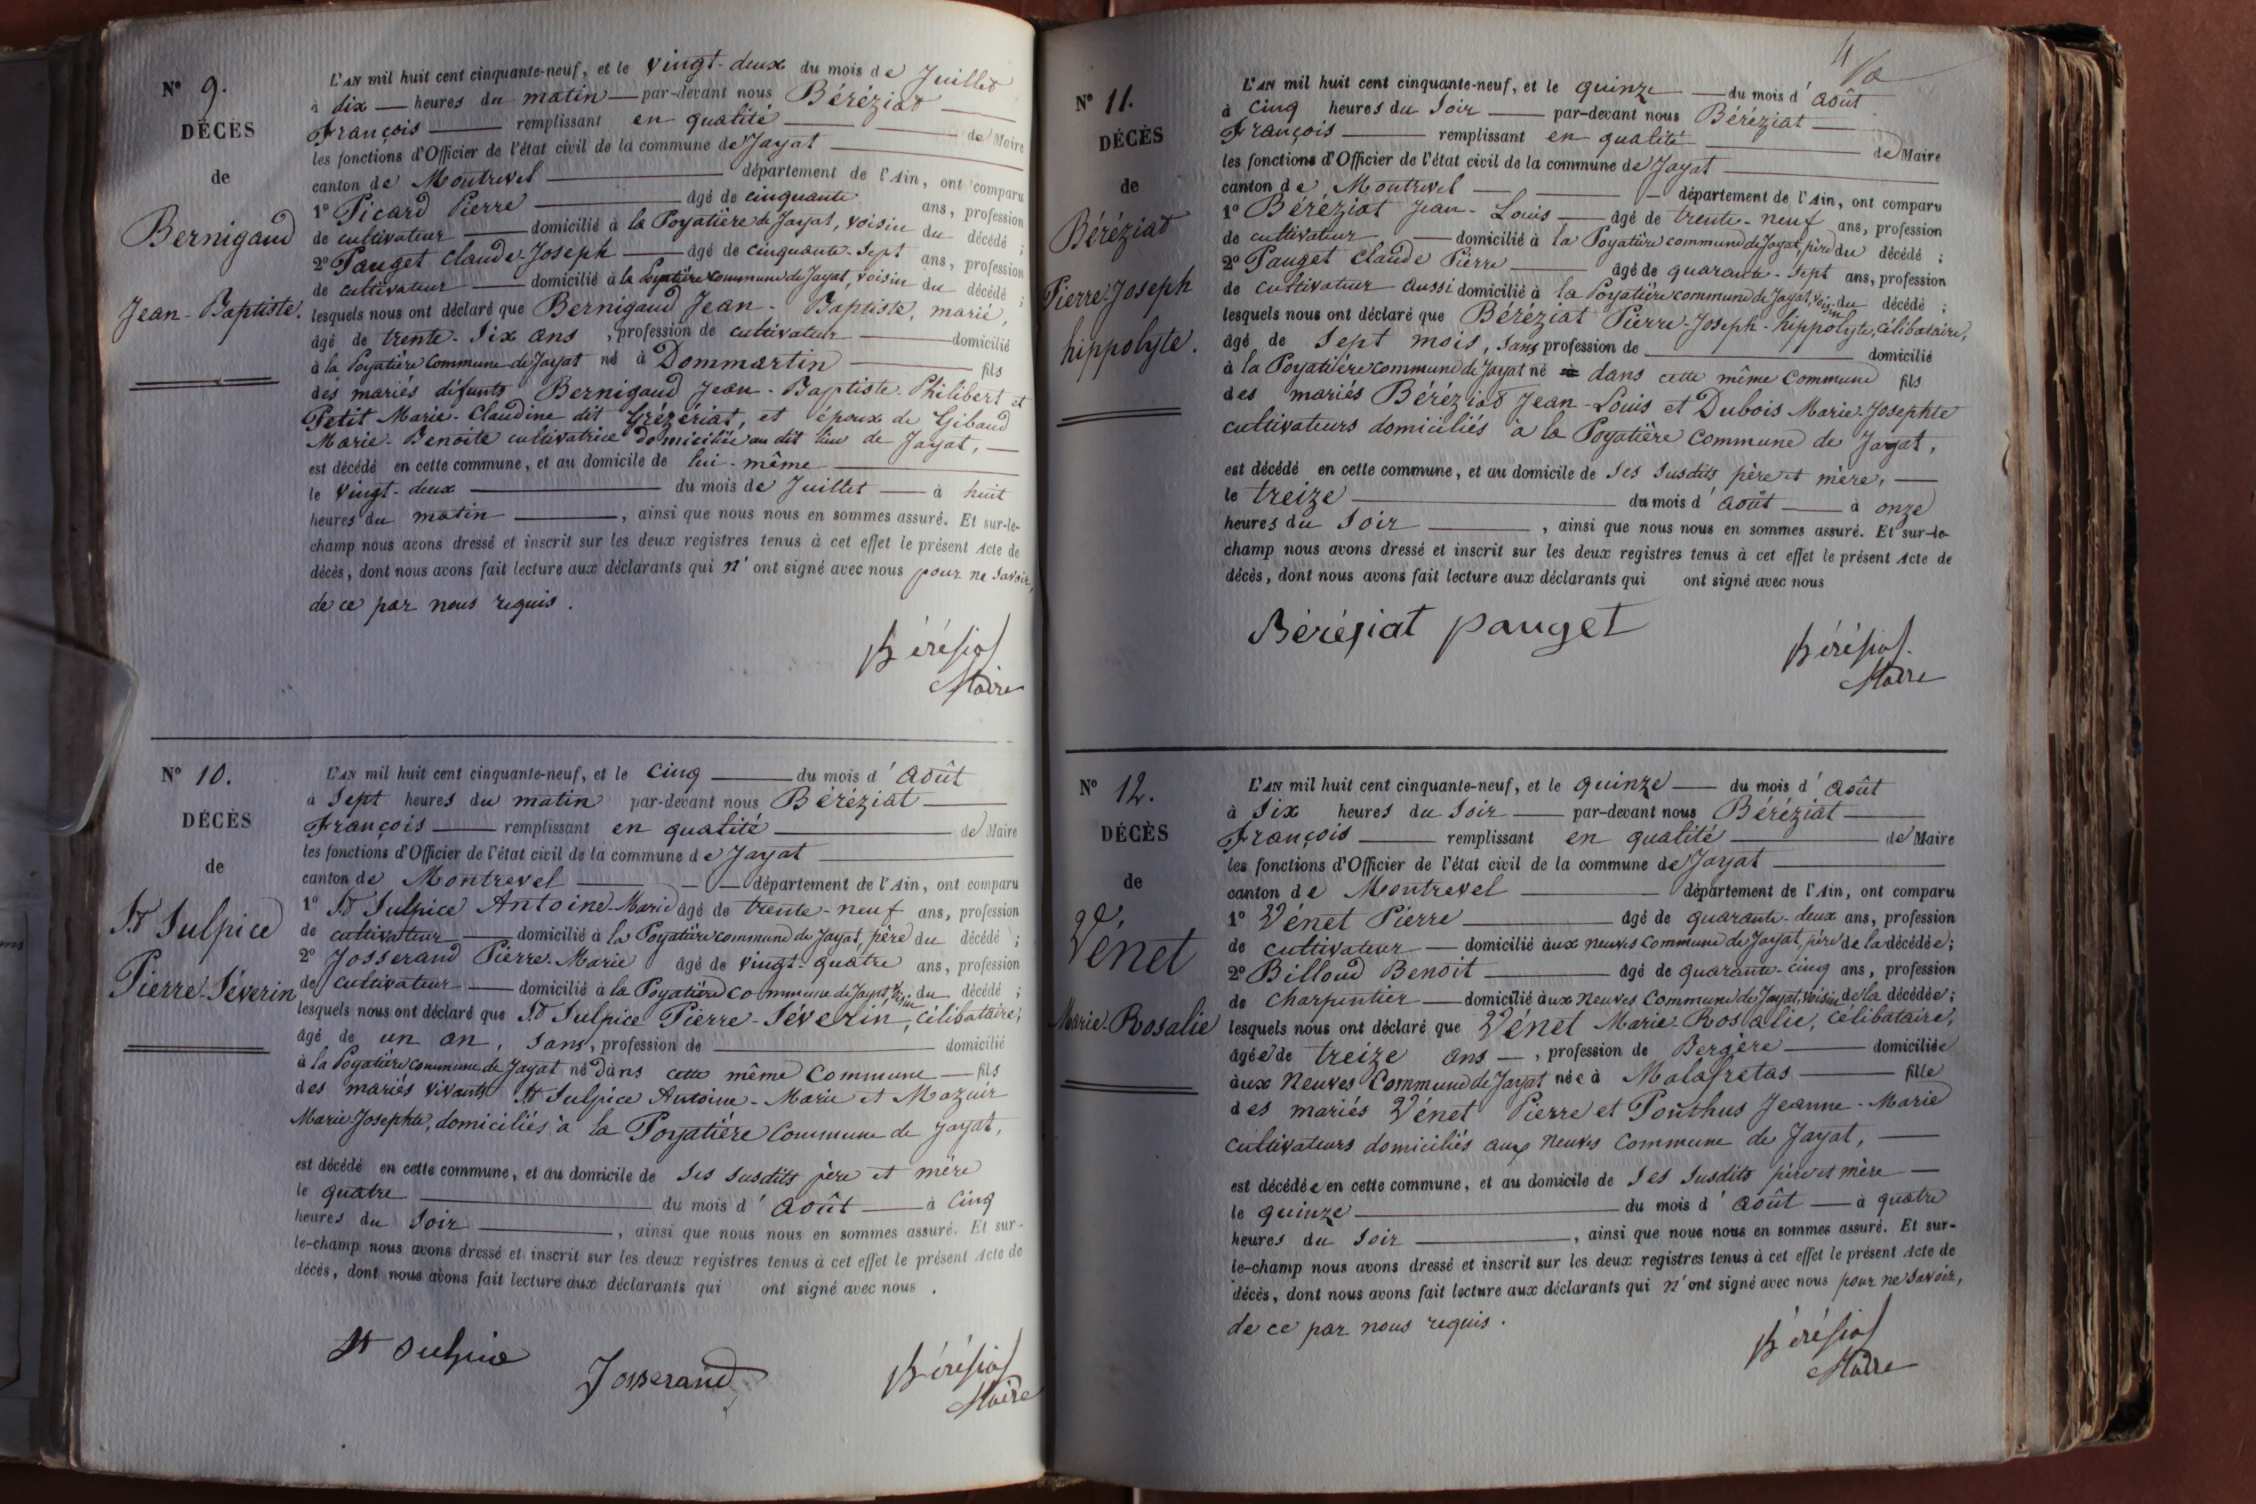 N° 9.
DÉCÈS
de
Bernigaud
Jean-Baptiste.
L'AN mil huit cent cinquante-neuf, et le vingt-deux du mois de Juillet
à dix heures du matin par-devant nous Béréziat
François remplissant en qualité de Maire
les fonctions d'Officier de l'état civil de la commune de Jayat
canton de Montrevel département de l'Ain, ont comparu
1° Picard Pierre âgé de cinquante ans, profession
de cultivateur domicilié à la Poyatière de Jayat, voisin du décédé ;
2° Pauget Claude-Joseph âgé de cinquante-sept ans, profession
de cultivateur domicilié à la Poyatière commune de Jayat, voisin du décédé ;
lesquels nous ont déclaré que Bernigaud Jean-Baptiste, marié,
âgé de trente-six ans, profession de cultivateur domicilié
à la Poyatière commune de Jayat né à Dommartin fils
des mariés défunts Bernigaud Jean-Baptiste-Philibert et
Petit Marie-Claudine dit Grézériat, et époux de Gibaud
Marie-Benoite cultivatrice domiciliée au dit lieu de Jayat,
est décédé en cette commune, et au domicile de lui-même
le vingt-deux du mois de Juillet à huit
heures du matin, ainsi que nous nous en sommes assuré. Et sur-le-
champ nous avons dressé et inscrit sur les deux registres tenus à cet effet le présent Acte de
décès, dont nous avons fait lecture aux déclarants qui n'ont signé avec nous pour ne savoir,
de ce par nous requis.
Bérésiat
Maire
N° 10.
DÉCÈS
de
St Sulpice
Pierre-Séverin
L'AN mil huit cent cinquante-neuf, et le cinq du mois d'août
à sept heures du matin par-devant nous Béréziat
François remplissant en qualité de Maire
les fonctions d'Officier de l'état civil de la commune de Jayat
canton de Montrevel département de l'Ain, ont comparu
1° St Sulpice Antoine-Marie âgé de trente-neuf ans, profession
de cultivateur domicilié à la Poyatière commune de Jayat, père du décédé ;
2° Josserand Pierre-Marie âgé de vingt-quatre ans, profession
de cultivateur domicilié à la Poyatière commune de Jayat, voisin du décédé ;
lesquels nous ont déclaré que St Sulpice Pierre-Séverin, célibataire,
âgé de un an, sans, profession de domicilié
à la Poyatière commune de Jayat né dans cette même commune fils
des mariés vivants St Sulpice Antoine-Marie et Mazuir
Marie-Josephte, domiciliés à la Poyatière commune de Jayat,
est décédé en cette commune, et au domicile de ses susdits père et mère
le quatre du mois d'août à cinq
heures du soir, ainsi que nous nous en sommes assuré. Et sur-
le-champ nous avons dressé et inscrit sur les deux registres tenus à cet effet le présent Acte de
décès, dont nous avons fait lecture aux déclarants qui ont signé avec nous.
St Sulpice
Josserand
Bérésiat
Maire
N° 11.
DÉCÈS
de
Béréziat
Pierre-Joseph
hippolyte.
L'AN mil huit cent cinquante-neuf, et le quinze du mois d'août
à cinq heures du soir par-devant nous Béréziat
François remplissant en qualité de Maire
les fonctions d'Officier de l'état civil de la commune de Jayat
canton de Montrevel département de l'Ain, ont comparu
1° Béréziat Jean-Louis âgé de trente-neuf ans, profession
de cultivateur domicilié à la Poyatière commune de Jayat, père du décédé ;
2° Pauget Claude Pierre âgé de quarante-sept ans, profession
de cultivateur aussi domicilié à la Poyatière commune de Jayat, voisin du décédé ;
lesquels nous ont déclaré que Béréziat Pierre-Joseph-hippolyte, célibataire,
âgé de sept mois, sans profession de domicilié
à la Poyatière commune de Jayat né à dans cette même commune fils
des mariés Béréziat Jean-Louis et Dubois Marie-Josephte
cultivateurs domiciliés à la Poyatière commune de Jayat,
est décédé en cette commune, et au domicile de ses susdits père et mère,
le treize du mois d'août à onze
heures du soir, ainsi que nous nous en sommes assuré. Et sur-le-
champ nous avons dressé et inscrit sur les deux registres tenus à cet effet le présent Acte de
décès, dont nous avons fait lecture aux déclarants qui ont signé avec nous
Bérésiat pauget
Bérésiat
Maire
N° 12.
DÉCÈS
de
Vénet
Marie-Rosalie
L'AN mil huit cent cinquante-neuf, et le quinze du mois d'août
à six heures du soir par-devant nous Béréziat
François remplissant en qualité de Maire
les fonctions d'Officier de l'état civil de la commune de Jayat
canton de Montrevel département de l'Ain, ont comparu
1° Vénet Pierre âgé de quarante-deux ans, profession
de cultivateur domicilié aux neuves commune de Jayat, père de la décédée ;
2° Billoud Benoit âgé de quarante-cinq ans, profession
de charpentier domicilié aux neuves commune de Jayat, voisin de la décédée ;
lesquels nous ont déclaré que Vénet Marie-Rosalie, célibataire,
âgée de treize ans, profession de Bergère domiciliée
aux neuves commune de Jayat née à Malafretas fille
des mariés Vénet Pierre et Ponthus Jeanne-Marie
cultivateurs domiciliés aux neuves commune de Jayat,
est décédée en cette commune, et au domicile de ses susdits père et mère
le quinze du mois d'août à quatre
heures du soir, ainsi que nous nous en sommes assuré. Et sur-
le-champ nous avons dressé et inscrit sur les deux registres tenus à cet effet le présent Acte de
décès, dont nous avons fait lecture aux déclarants qui n'ont signé avec nous pour ne savoir,
de ce par nous requis.
Bérésiat
Maire